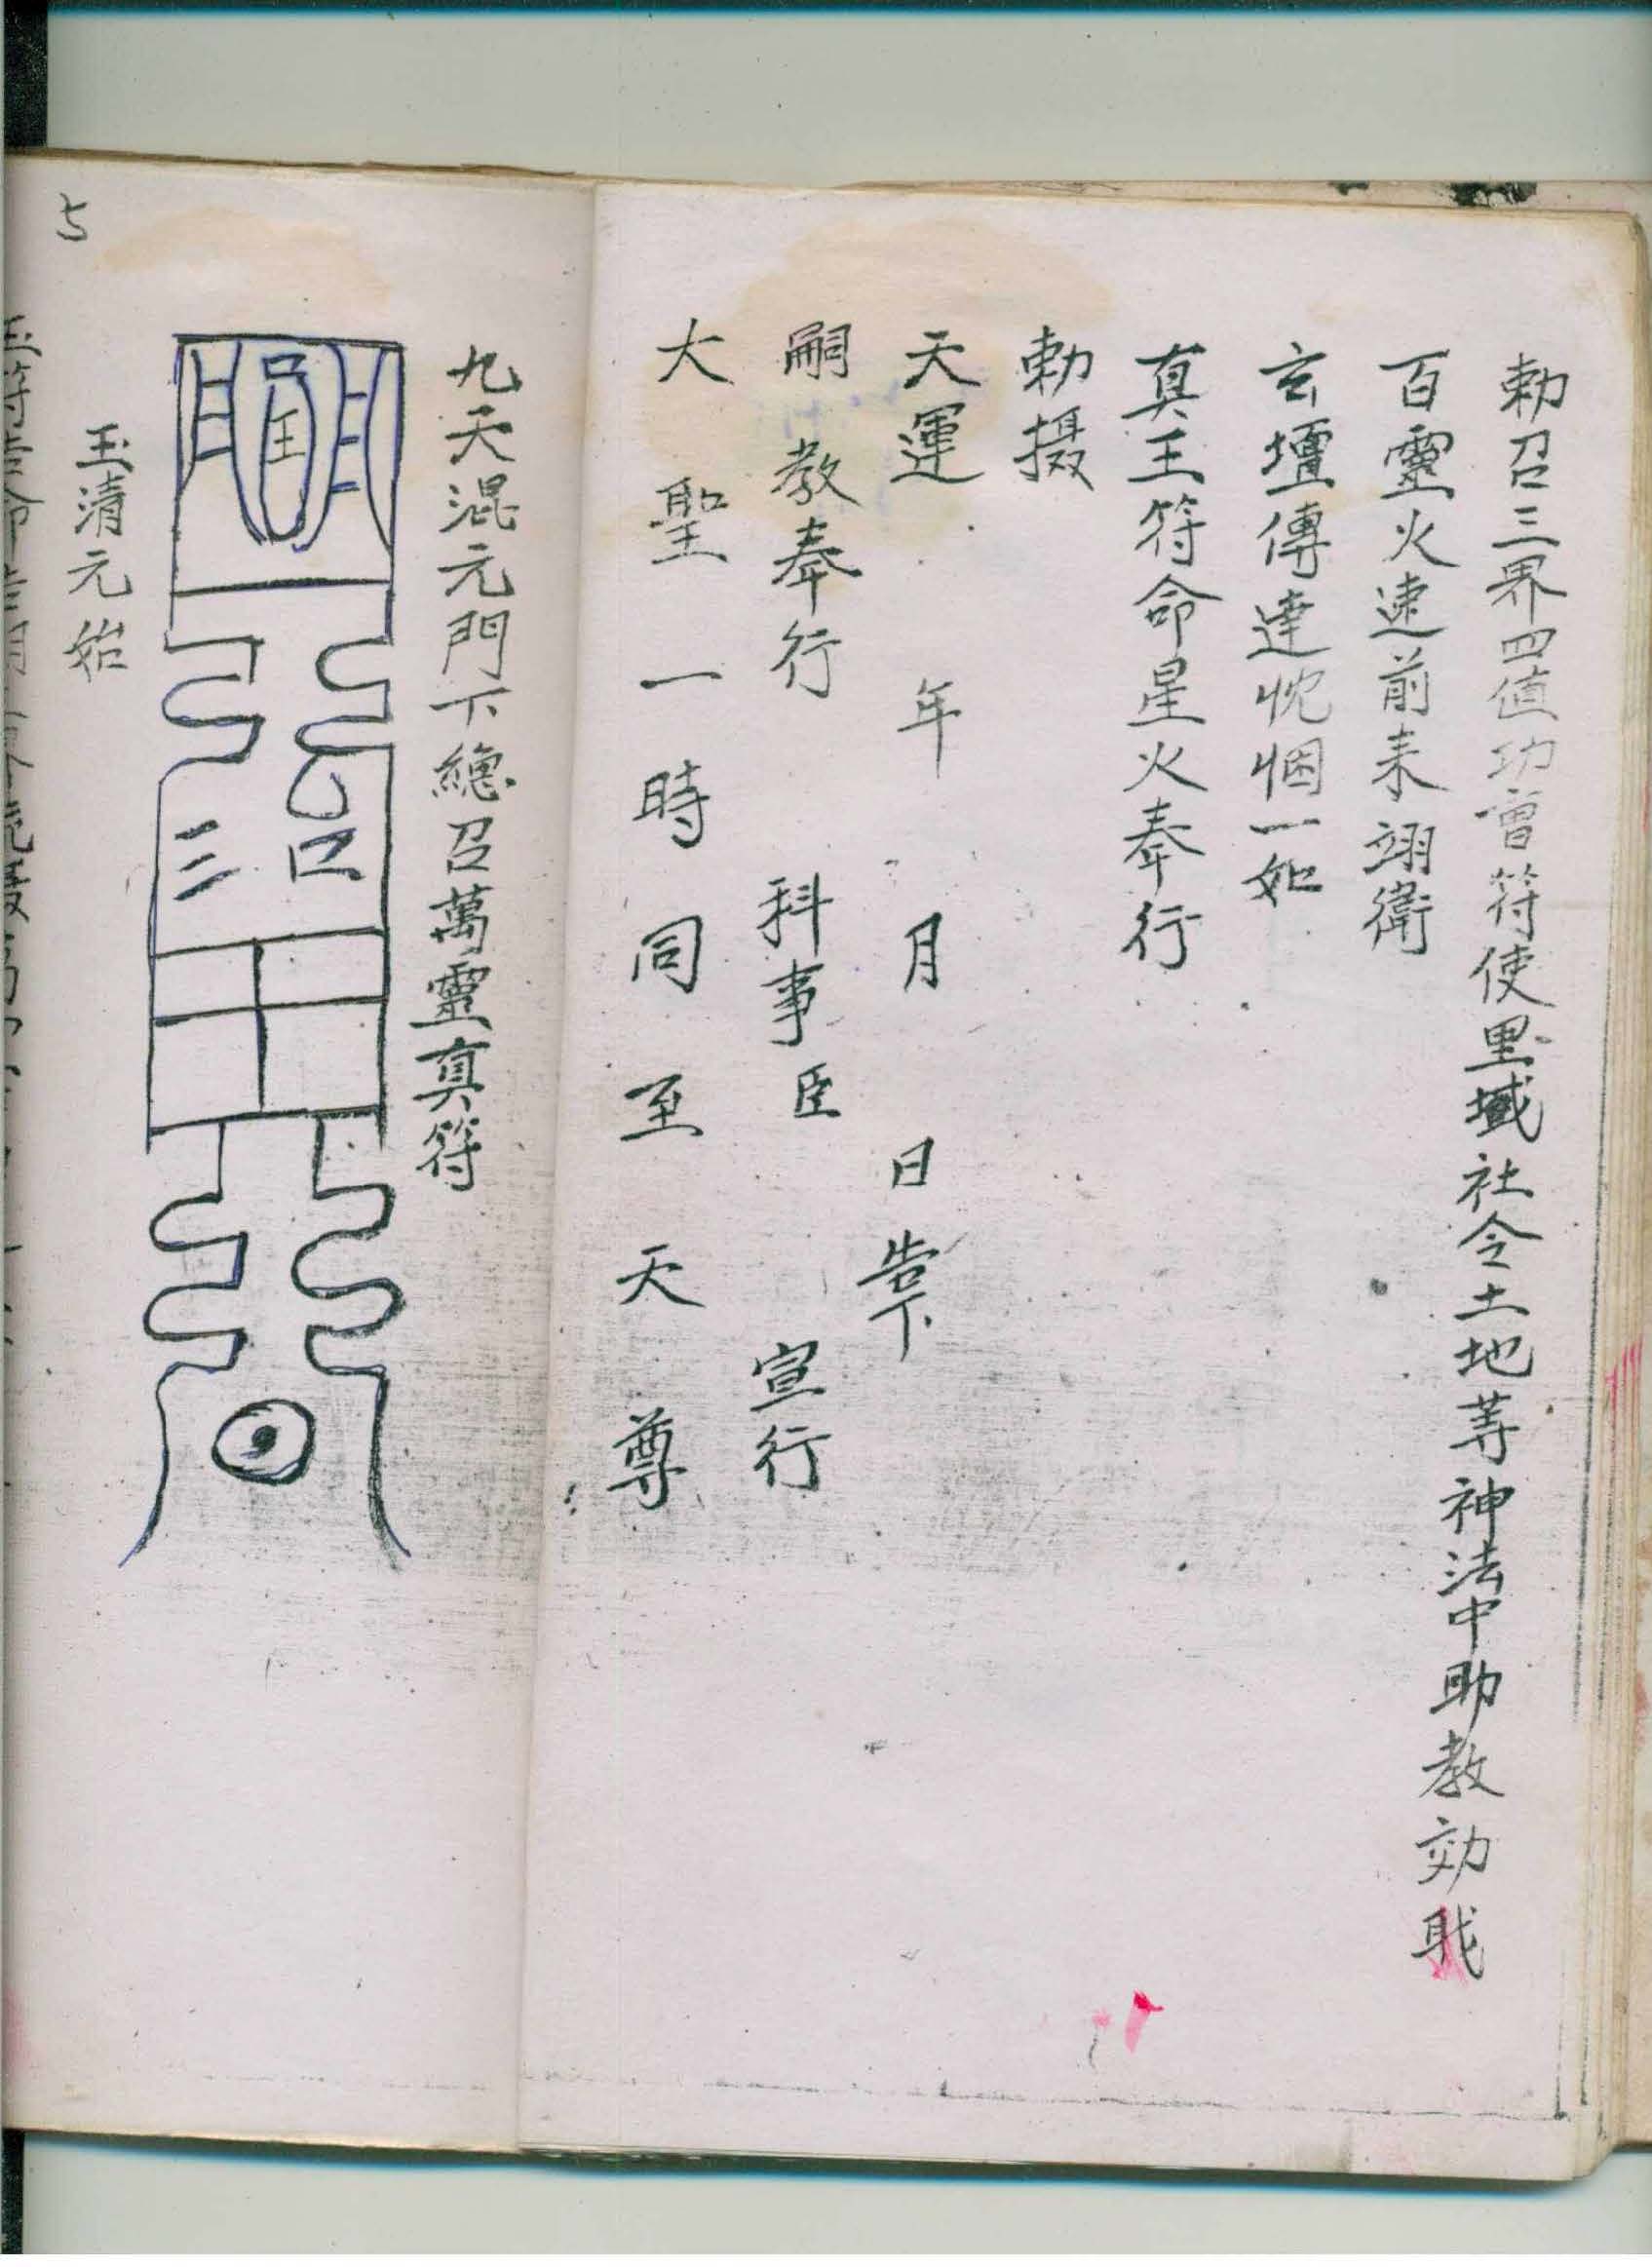 勅召三界四值功曹符使里域社令土地等神法中助教効職
百靈火速前来翊衛
玄壇傳達忱悃一如
真王符命星火奉行
勅摄
天運 年 月 日告下
嗣教奉行 科事臣 宣行
大聖一時同至天尊
九天混元門下總召萬靈真符
玉清元始
5